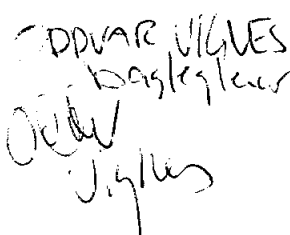 ODDVAR VIGNES
Dagleg leiar
Oddvar
Vignes